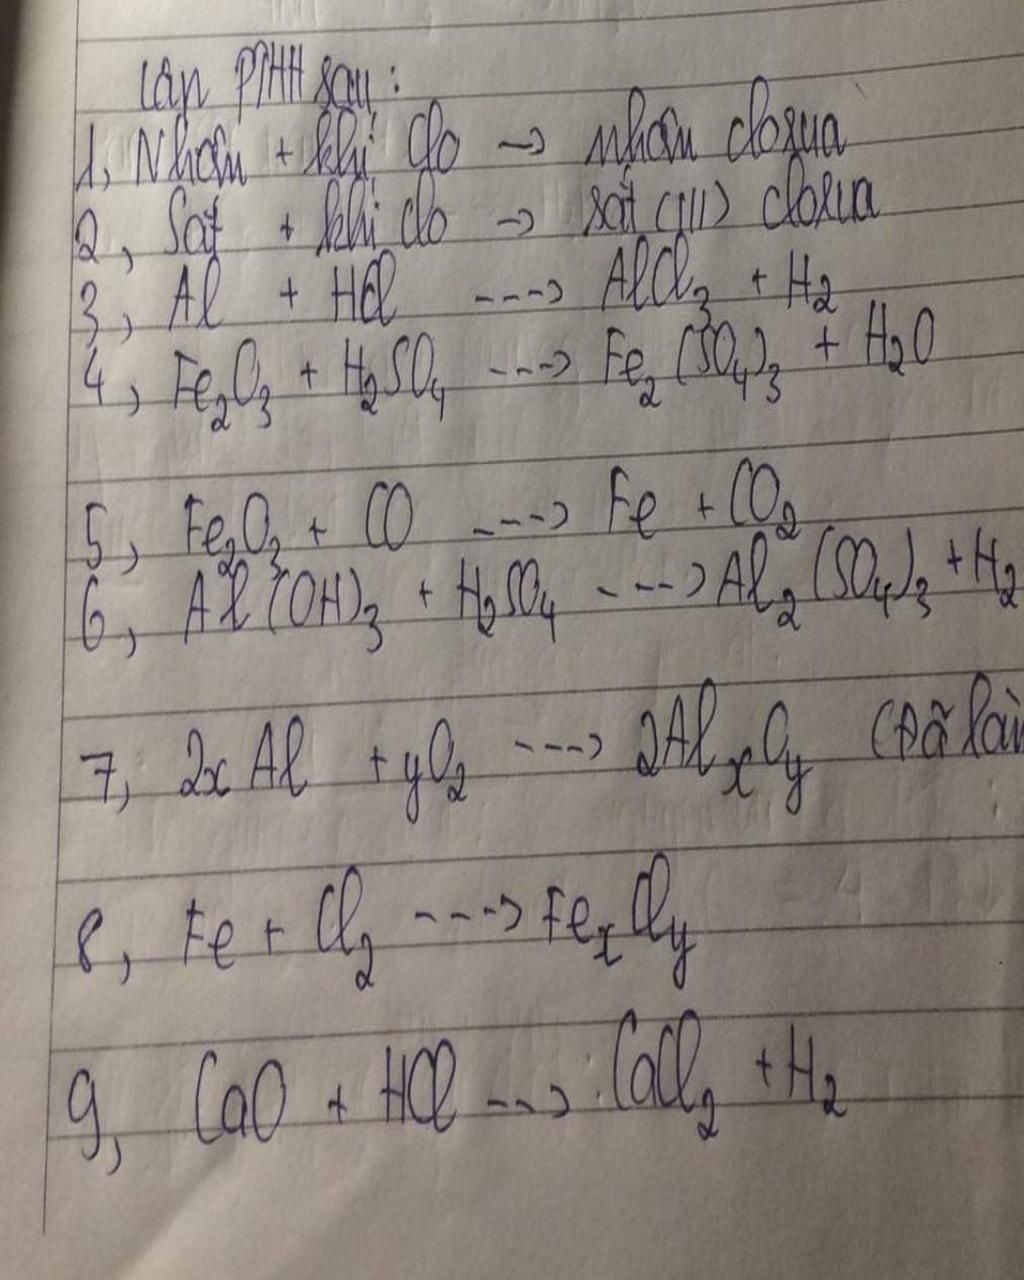 Cân PTHH sau:
1, Nhôm + khí clo → nhôm clorua
2, Sắt + khí clo → sắt (III) clorua
3, Al + HCl ---> AlCl₃ + H₂
4, Fe₂O₃ + H₂SO₄ ---> Fe₂(SO₄)₃ + H₂O
5, Fe₂O₃ + CO ---> Fe + CO₂
6, Al(OH)₃ + H₂SO₄ ---> Al₂(SO₄)₃ + H₂
7, 2x Al + yO₂ ---> 2AlₓOᵧ (Đã
8, Fe + Cl₂ ---> FeₓClᵧ
9, CaO + HCl --> CaCl₂ + H₂